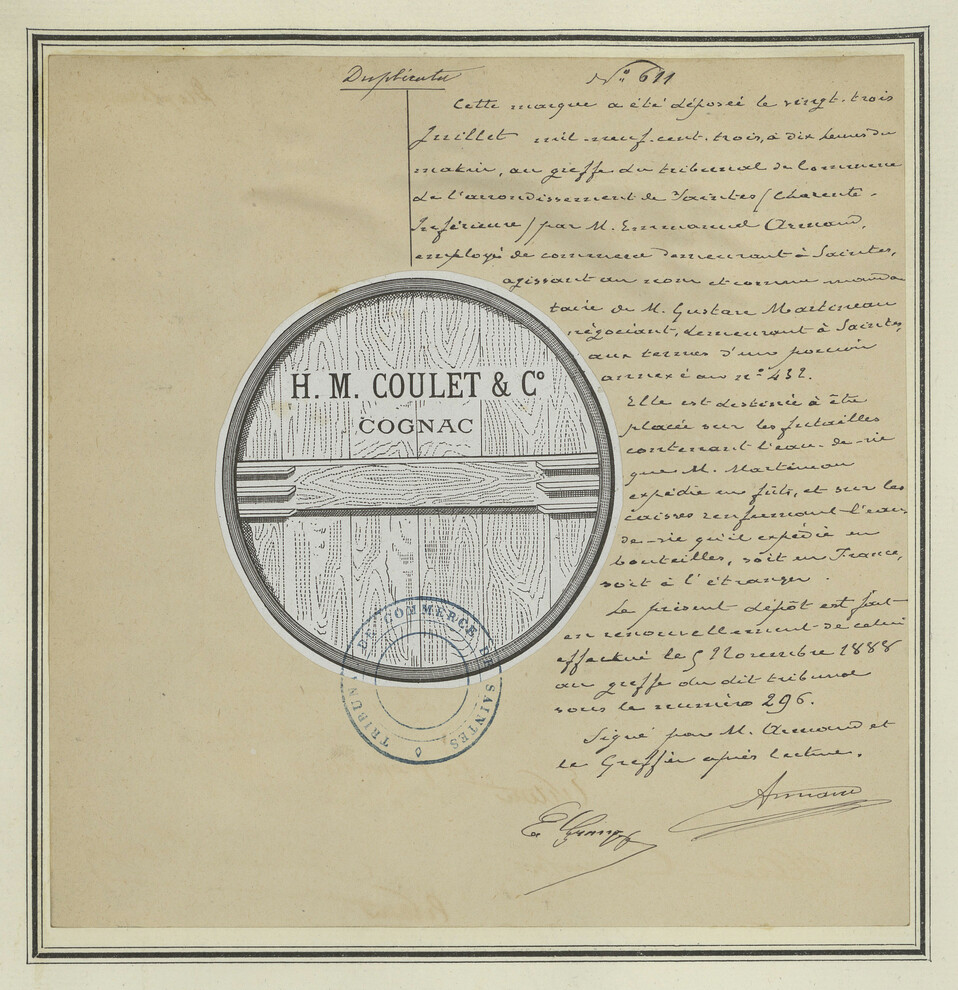 Duplicata
N° 611
Cette marque a été déposée le vingt-trois
Juillet mil-neuf-cent-trois, à dix heures du
matin, au greffe du tribunal de Commerce
de l'arrondissement de Saintes (Charente-
Inférieure) par M. Emmanuel Armand,
employé de commerce demeurant à Saintes,
agissant au nom et comme manda
taire de M. Gustave Martineau
négociant, demeurant à Saintes,
aux termes d'un pouvoir
annexé au n° 432.
Elle est destinée à être
placée sur les futailles
contenant l'eau-de-vie
que M. Martineau
expédie en fûts, et sur les
caisses renfermant l'eau-
de-vie qu'il expédie en
bouteilles, soit en France,
soit à l'étranger.
Le présent dépôt est fait
en renouvellement de celui
effectué le 5 Novembre 1888
au greffe du dit tribunal
sous le numéro 296.
Signé par M. Armand et
le Greffier après lecture.
Armand
H. M. COULET & C°
COGNAC
TRIBUNAL DE COMMERCE DE SAINTES